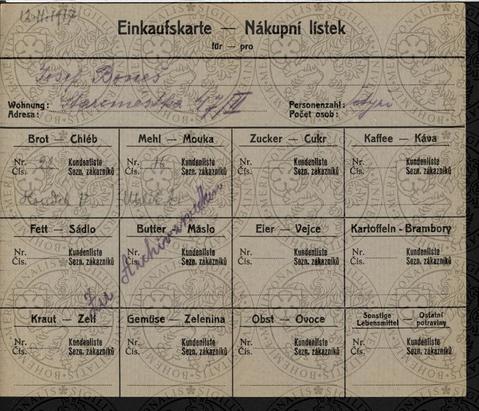 12.II.1917
Einkaufskarte — Nákupní lístek
für — pro
Josef Boneš
Wohnung:
Adresa:
Personenzahl:
Počet osob:
Brot — Chléb
Mehl — Mouka
Zucker — Cukr
Kaffee — Káva
Nr. Kundenliste
Čís. Sezn. zákazníků
Nr. 16 Kundenliste
Čís. Sezn. zákazníků
Nr. Kundenliste
Čís. Sezn. zákazníků
Nr. Kundenliste
Čís. Sezn. zákazníků
Fett — Sádlo
Butter — Máslo
Eier — Vejce
Kartoffeln - Brambory
Nr. Kundenliste
Čís. Sezn. zákazníků
Nr. Kundenliste
Čís. Sezn. zákazníků
Nr. Kundenliste
Čís. Sezn. zákazníků
Nr. Kundenliste
Čís. Sezn. zákazníků
Kraut — Zelí
Gemüse — Zelenina
Obst — Ovoce
Sonstige Lebensmittel — Ostatní potraviny
Nr. Kundenliste
Čís. Sezn. zákazníků
Nr. Kundenliste
Čís. Sezn. zákazníků
Nr. Kundenliste
Čís. Sezn. zákazníků
Nr. Kundenliste
Čís. Sezn. zákazníků
Zu Archivzwecken